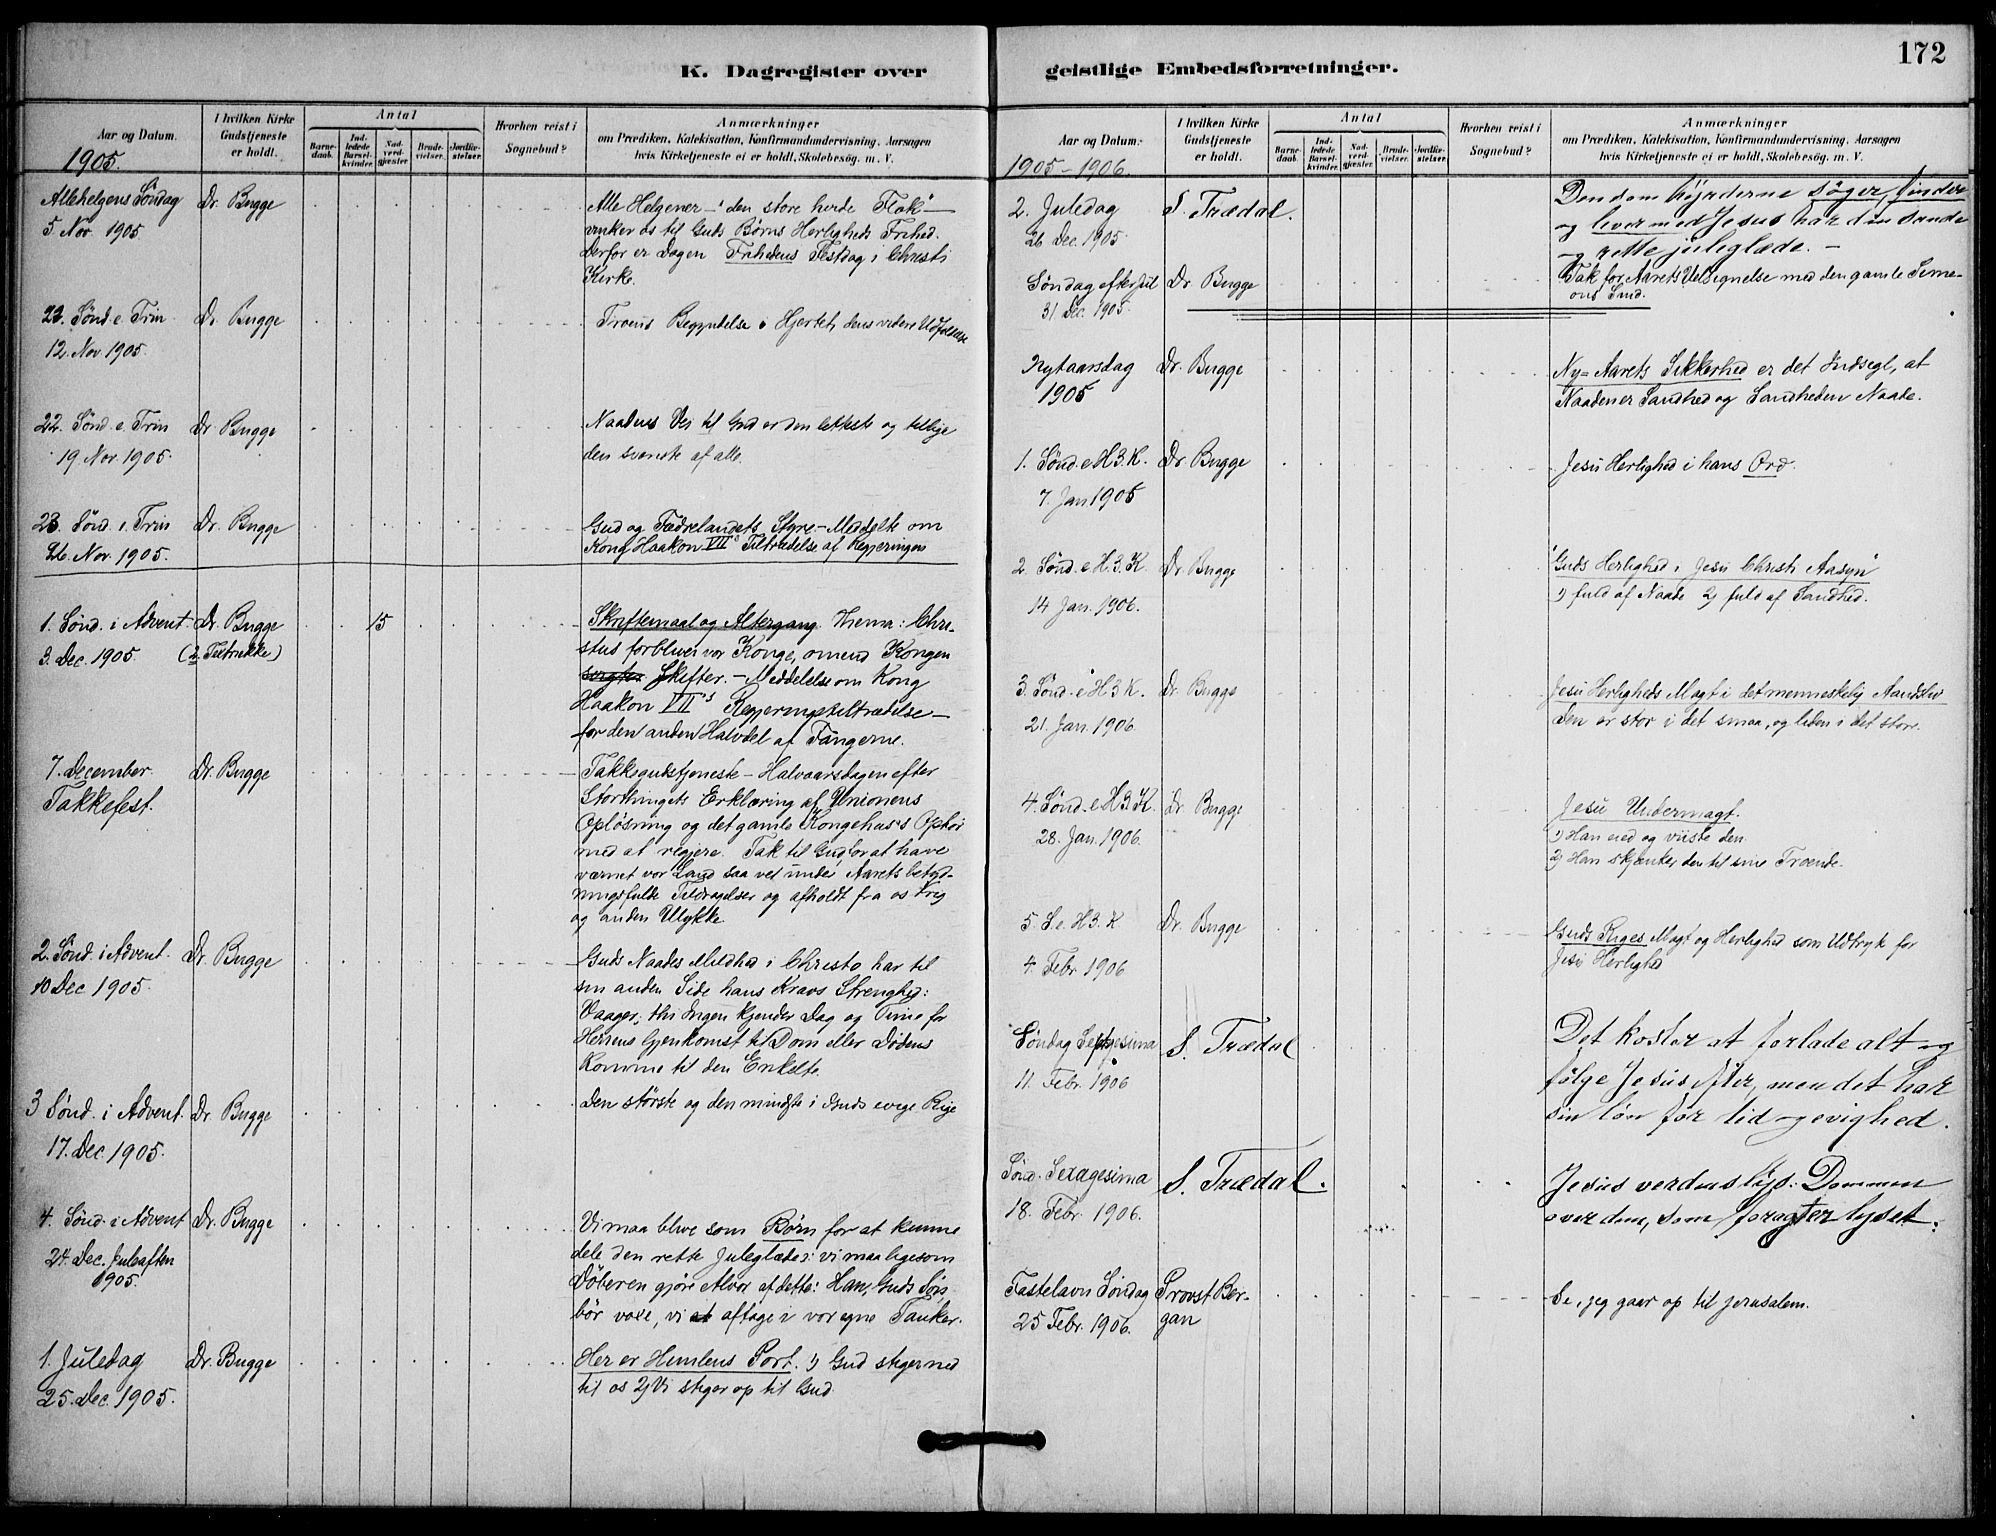 172
K. Dagregister over geistlige Embedsforretninger.
Aar og Datum.
I hvilken Kirke Gudstjeneste er holdt.
Antal
Barnedaab.
Indledede Barselkvinder.
Nadverdgjæster.
Brudevielser.
Jordfæstelser.
Hvorhen reist i Sognebud?
Anmærkninger
om Prædiken, Katekisation, Konfirmandundervisning, Aarsagen
hvis Kirketjeneste ei er holdt, Skolebesøg. m. V.
1905.
Allehelgens Søndag Dr. Bugge
5 Nov. 1905
Alle Helgener – "den store hvide Flok" –
vinker os til Guds Børns Herligheds Frihed.
Derfor er Dagen Frihedens Festdag i Christi
Kirke.
21. Sønd. e. Trin. Dr. Bugge
12. Nov. 1905.
Troens Begyndelse i Hjertet, dens videre Udfoldelse
22. Sønd. e. Trin Dr Bugge
19 Nov. 1905.
Naadens Vei til Gud er den letteste og tillige
den sværeste af alle.
23. Sønd. e. Trin Dr. Bugge
26. Nov. 1905.
Gud og Fædrelandets Styre – Meddelte om
Kong Haakon VII's Tiltrædelse af Regjeringen
1. Sønd. i Advent. Dr. Bugge 15
3. Dec. 1905 (2. Tiltrække)
Skriftemaal og Altergang. Thema: Chri-
stus forbliver vor Konge, omend Kongen
skifter. – Meddelelse om Kong
Haakon VII's Regjeringstiltrædelse –
for den anden Halvdel af Fangerne.
7. December Dr. Bugge
Takkefest.
Takkegudstjeneste – Halvaarsdagen efter
Storthingets Erklæring af Unionens
Opløsning og det gamle Kongehus's Ophør
med at regjere. Tak til Gud for at have
værnet vor Land saa vel under Aarets betyd-
ningsfulde Tildragelser og afholdt fra os Krig
og anden Ulykke
2. Sønd. i Advent. Dr. Bugge
10 Dec 1905.
Guds Naades Mildhed i Christo har til
sin anden Side hans Kravs Strenghed:
Vaager, thi Ingen kjender Dag og Time for
Herrens Gjenkomst til Dom eller Dødens
Komme til den Enkelte.
3 Sønd. i Advent. Dr. Bugge
17. Dec. 1905.
Den største og den mindste i Guds evige Rige
4. Sønd. i Advent Dr. Bugge
24. Dec. Juleaften
1905.
Vi maa blive som Børn for at kunne
dele den rette Juleglæde; vi maa ligesom
Døberen gjøre Alvor af dette: Han, Guds Søn,
bør voxe, vi aftage i vor egne Tanker.
1. Juledag Dr. Bugge
25. Dec. 1905.
Her er Himlens Port. 1) Gud stiger ned
til os 2) Vi stiger op til Gud.
Aar og Datum.
I hvilken Kirke Gudstjeneste er holdt.
Antal
Barnedaab.
Indledede Barselkvinder.
Nadverdgjæster.
Brudevielser.
Jordfæstelser.
Hvorhen reist i Sognebud?
Anmærkninger
om Prædiken, Katekisation, Konfirmandundervisning, Aarsagen
hvis Kirketjeneste ei er holdt, Skolebesøg. m. V.
1905–1906.
2. Juledag S. Trædal.
26 Dec. 1905.
Den som hyrderne søger, finder
og lever med Jesus har den sande
og rette juleglæde. –
Søndag efter Jul Dr. Bugge
31 Dec. 1905.
Tak for Aarets Velsignelse med den gamle Sime-
ons Sind.
Nytaarsdag Dr. Bugge
1905
Ny-Aarets Sikkerhed er det Indsegl, at
Naaden er Sandhed og Sandheden Naade.
1. Sønd. e H3.K. Dr. Bugge
7. Jan 1905
Jesu Herlighed i hans Ord.
2. Sønd. e H.3.K. Dr. Bugge
14 Jan. 1906.
"Guds Herlighed i Jesu Christi Aasyn"
1) fuld af Naade 2) fuld af Sandhed.
3. Sønd. e H3K. Dr. Bugge
21. Jan. 1906.
Jesu Herligheds Magt i det menneskelig Aandsliv
Den er stor i det smaa, og liden i det store.
4. Sønd. e H3.K. Dr. Bugge
28. Jan. 1906.
Jesu Undermagt.
1) Han eied og viiste den
2) Han skjænker den til sine Troende.
5. S. e. H3.K Dr. Bugge
4. Febr. 1906
Guds Riges Magt og Herlighed som Udtryk for
Jesu Herlighed
Søndag Septuagesima S. Trædal
11. Febr. 1906
Det koster at forlade alt og
følge Jesus efter, men det har
sin løn for tid og evighed.
Sønd. Sexagesima S. Trædal.
18. Febr. 1906.
Jesus verdens lys. Dommen
over dem, som foragter lyset.
Fastelavn Søndag Provst Ber-
25 Febr. 1906. gan
Se, jeg gaar op til Jerusalem.